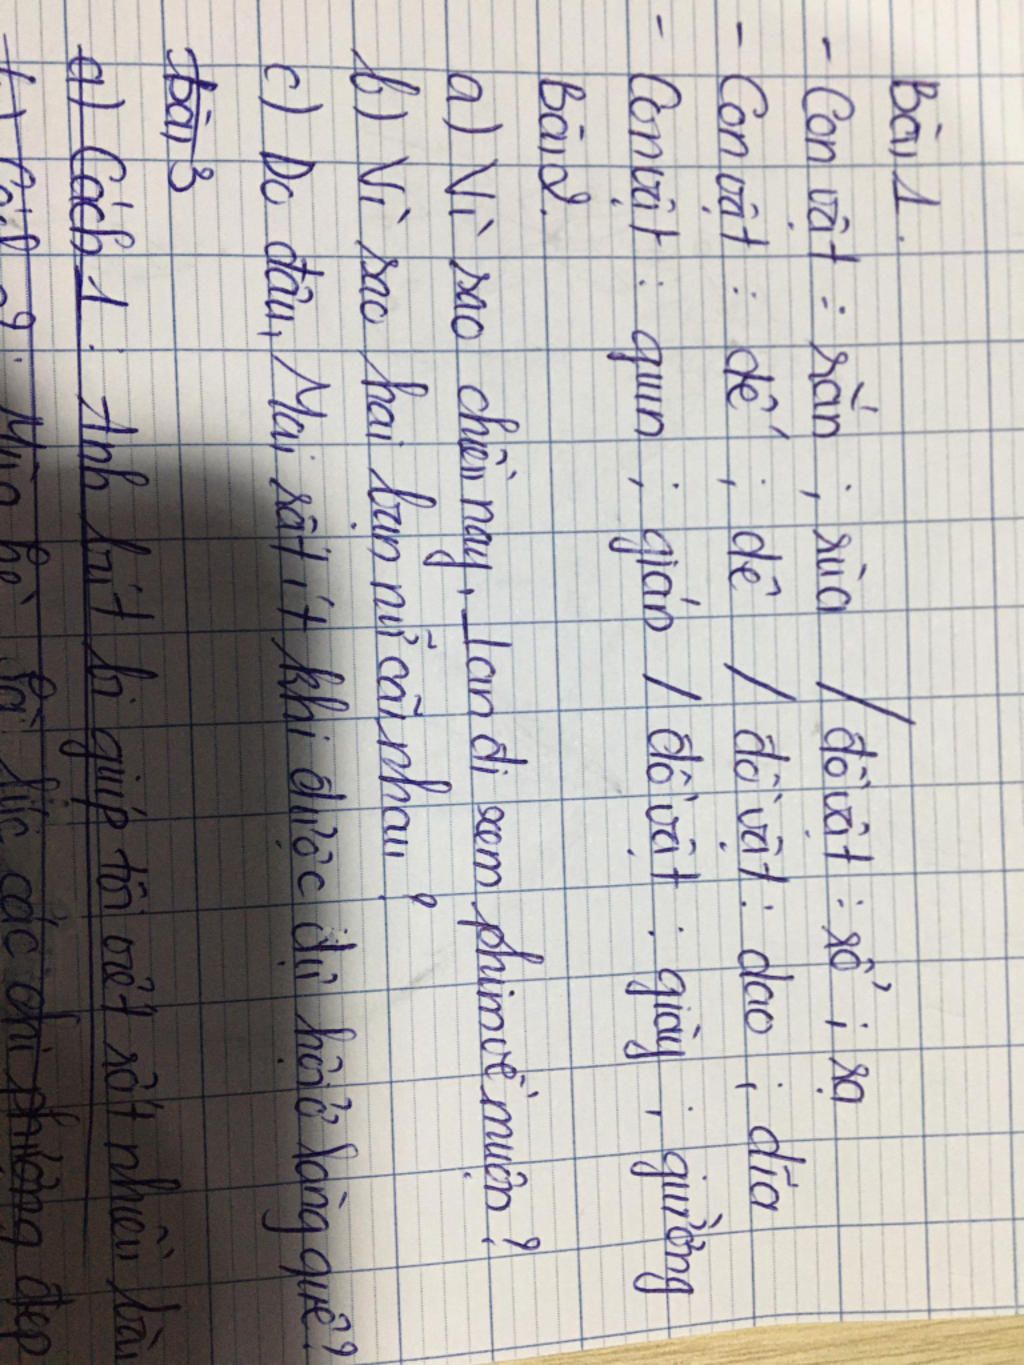 Bài 1.
- Con vật : rắn ; rùa / đồ vật : rổ ; rạ
- Con vật : dế ; dê / đồ vật : dao ; dĩa
- Con vật : giun ; gián / đồ vật : giày ; giường
Bài 2.
a) Vì sao chiều nay, Lan đi xem phim về muộn ?
b) Vì sao hai bạn nữ cãi nhau ?
c) Do đâu, Mai rất ít khi được dự hội ở làng quê ?
Bài 3
a) Cách 1 : Anh bút bi giúp tôi viết rất nhiều bài
các chị phượng đẹp